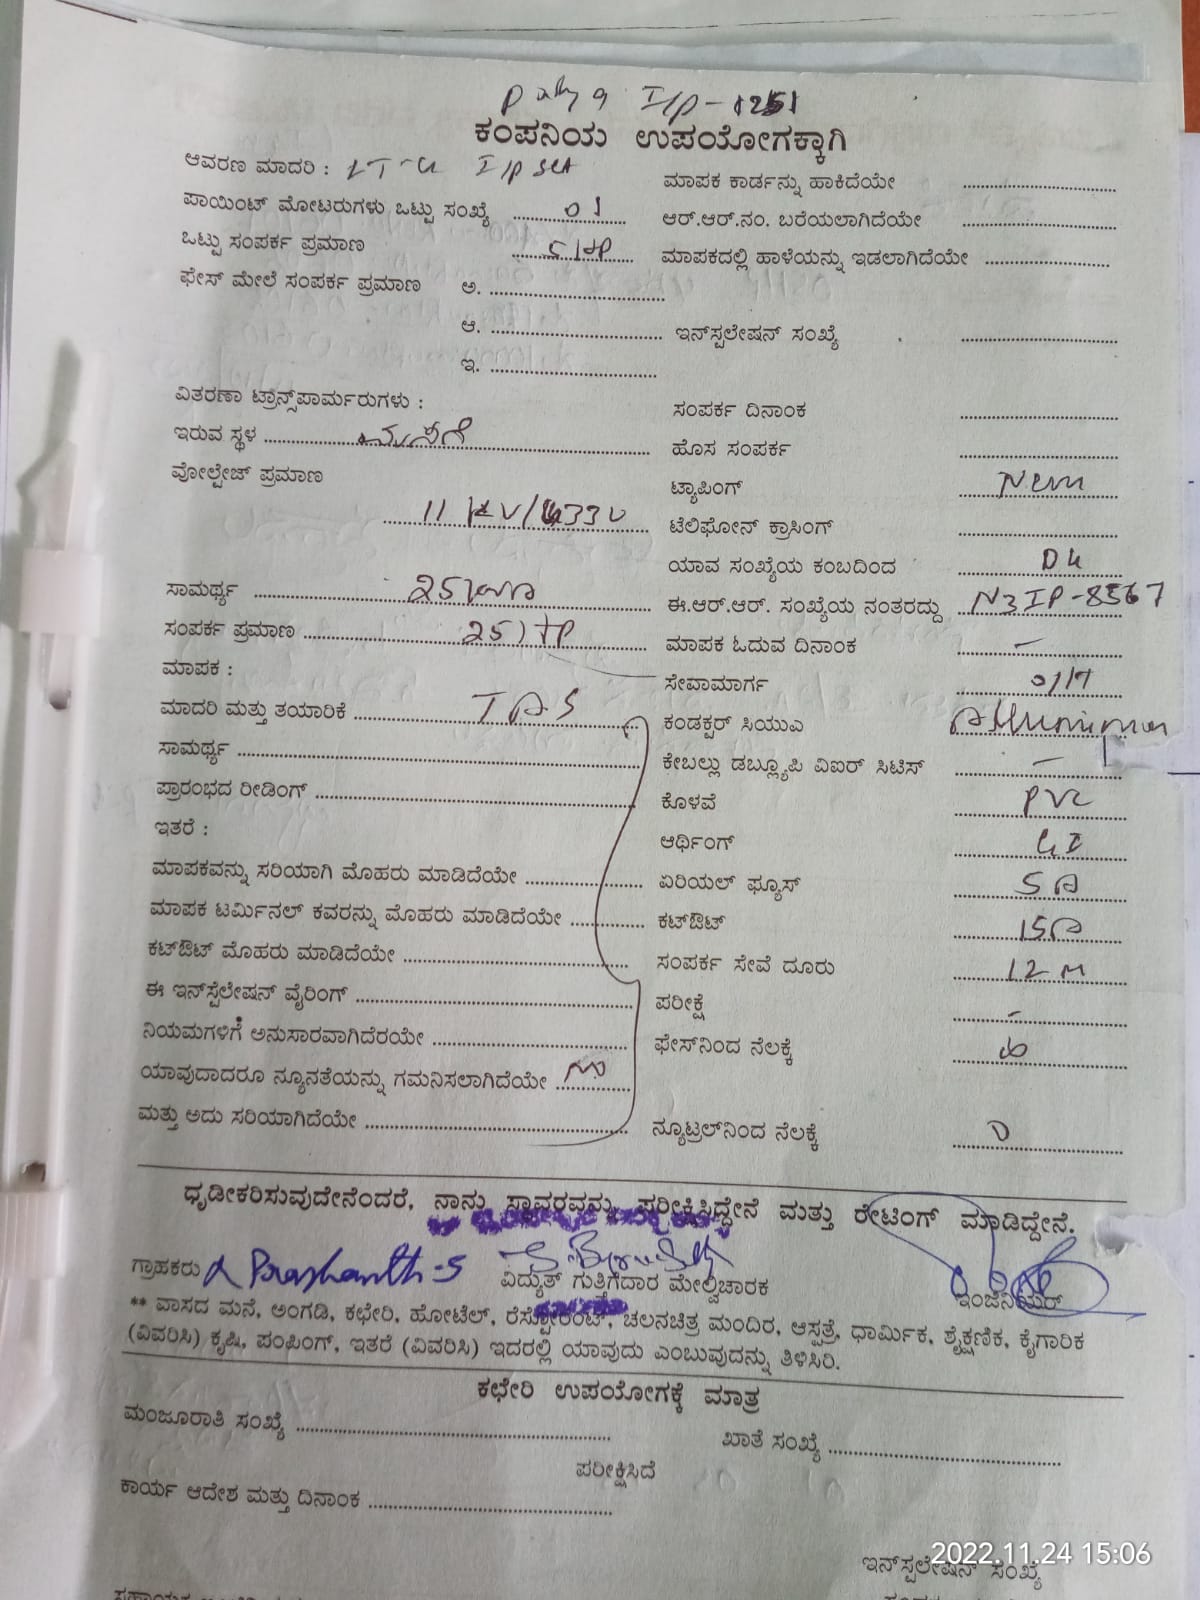 ಕಂಪನಿಯ ಉಪಯೋಗಕ್ಕಾಗಿ
ಆವರಣ ಮಾದರಿ : I/P Set
ಮಾಪಕ ಕಾರ್ಡನ್ನು ಹಾಕಿದೆಯೇ
ಪಾಯಿಂಟ್ ಮೋಟರುಗಳು ಒಟ್ಟು ಸಂಖ್ಯೆ 01
ಆರ್.ಆರ್.ನಂ. ಬರೆಯಲಾಗಿದೆಯೇ
ಒಟ್ಟು ಸಂಪರ್ಕ ಪ್ರಮಾಣ 5 HP
ಮಾಪಕದಲ್ಲಿ ಹಾಳೆಯನ್ನು ಇಡಲಾಗಿದೆಯೇ
ಫೇಸ್ ಮೇಲೆ ಸಂಪರ್ಕ ಪ್ರಮಾಣ ಅ.
ಆ.
ಇನ್‌ಸ್ಪಲೇಷನ್ ಸಂಖ್ಯೆ
ಇ.
ವಿತರಣಾ ಟ್ರಾನ್ಸ್‌ಪಾರ್ಮರುಗಳು :
ಸಂಪರ್ಕ ದಿನಾಂಕ
ಇರುವ ಸ್ಥಳ
ಹೊಸ ಸಂಪರ್ಕ
ವೋಲ್ಟೇಜ್ ಪ್ರಮಾಣ
11 KV/433V
ಟ್ಯಾಪಿಂಗ್ New
ಟೆಲಿಫೋನ್ ಕ್ರಾಸಿಂಗ್
ಯಾವ ಸಂಖ್ಯೆಯ ಕಂಬದಿಂದ
ಸಾಮರ್ಥ್ಯ 25 kva
ಈ.ಆರ್.ಆರ್. ಸಂಖ್ಯೆಯ ನಂತರದ್ದು N3IP-8567
ಸಂಪರ್ಕ ಪ್ರಮಾಣ 25 HP
ಮಾಪಕ ಓದುವ ದಿನಾಂಕ -
ಮಾಪಕ :
ಸೇವಾಮಾರ್ಗ O/H
ಮಾದರಿ ಮತ್ತು ತಯಾರಿಕೆ
ಕಂಡಕ್ಟರ್ ಸಿಯುಎ
ಸಾಮರ್ಥ್ಯ
ಕೇಬಲ್ಲು ಡಬ್ಲ್ಯೂಪಿ ವಿಐರ್ ಸಿಟಿಸ್ -
ಪ್ರಾರಂಭದ ರೀಡಿಂಗ್
ಕೊಳವೆ PVC
ಇತರೆ :
ಆರ್ಥಿಂಗ್ GI
ಮಾಪಕವನ್ನು ಸರಿಯಾಗಿ ಮೊಹರು ಮಾಡಿದೆಯೇ
ಏರಿಯಲ್ ಫ್ಯೂಸ್ 5A
ಮಾಪಕ ಟರ್ಮಿನಲ್ ಕವರನ್ನು ಮೊಹರು ಮಾಡಿದೆಯೇ
ಕಟ್‌ಔಟ್ 15A
ಕಟ್‌ಔಟ್ ಮೊಹರು ಮಾಡಿದೆಯೇ
ಸಂಪರ್ಕ ಸೇವೆ ದೂರು 12 M
ಈ ಇನ್‌ಸ್ಪೆಲೇಷನ್ ವೈರಿಂಗ್
ಪರೀಕ್ಷೆ -
ನಿಯಮಗಳಿಗೆ ಅನುಸಾರವಾಗಿದೆರಯೇ
ಫೇಸ್‌ನಿಂದ ನೆಲಕ್ಕೆ
ಯಾವುದಾದರೂ ನ್ಯೂನತೆಯನ್ನು ಗಮನಿಸಲಾಗಿದೆಯೇ
ಮತ್ತು ಅದು ಸರಿಯಾಗಿದೆಯೇ
ನ್ಯೂಟ್ರಲ್‌ನಿಂದ ನೆಲಕ್ಕೆ
ಧೃಡೀಕರಿಸುವುದೇನೆಂದರೆ, ನಾನು ಸ್ಥಾವರವನ್ನು ಪರೀಕ್ಷಿಸಿದ್ದೇನೆ ಮತ್ತು ರೇಟಿಂಗ್ ಮಾಡಿದ್ದೇನೆ.
ಗ್ರಾಹಕರು Prashanth-S ವಿದ್ಯುತ್ ಗುತ್ತಿಗೆದಾರ ಮೇಲ್ವಿಚಾರಕ ಇಂಜಿನಿಯರ್
** ವಾಸದ ಮನೆ, ಅಂಗಡಿ, ಕಛೇರಿ, ಹೋಟೆಲ್, ರೆಸ್ಟೋರೆಂಟ್, ಚಲನಚಿತ್ರ ಮಂದಿರ, ಆಸ್ಪತ್ರೆ, ಧಾರ್ಮಿಕ, ಶೈಕ್ಷಣಿಕ, ಕೈಗಾರಿಕ
(ವಿವರಿಸಿ) ಕೃಷಿ, ಪಂಪಿಂಗ್, ಇತರೆ (ವಿವರಿಸಿ) ಇದರಲ್ಲಿ ಯಾವುದು ಎಂಬುವುದನ್ನು ತಿಳಿಸಿರಿ.
ಕಛೇರಿ ಉಪಯೋಗಕ್ಕೆ ಮಾತ್ರ
ಮಂಜೂರಾತಿ ಸಂಖ್ಯೆ
ಖಾತೆ ಸಂಖ್ಯೆ
ಪರೀಕ್ಷಿಸಿದೆ
ಕಾರ್ಯ ಆದೇಶ ಮತ್ತು ದಿನಾಂಕ
2022.11.24 15:06
ಇನ್‌ಸ್ಪಲೇಷನ್ ಸಂಖ್ಯೆ